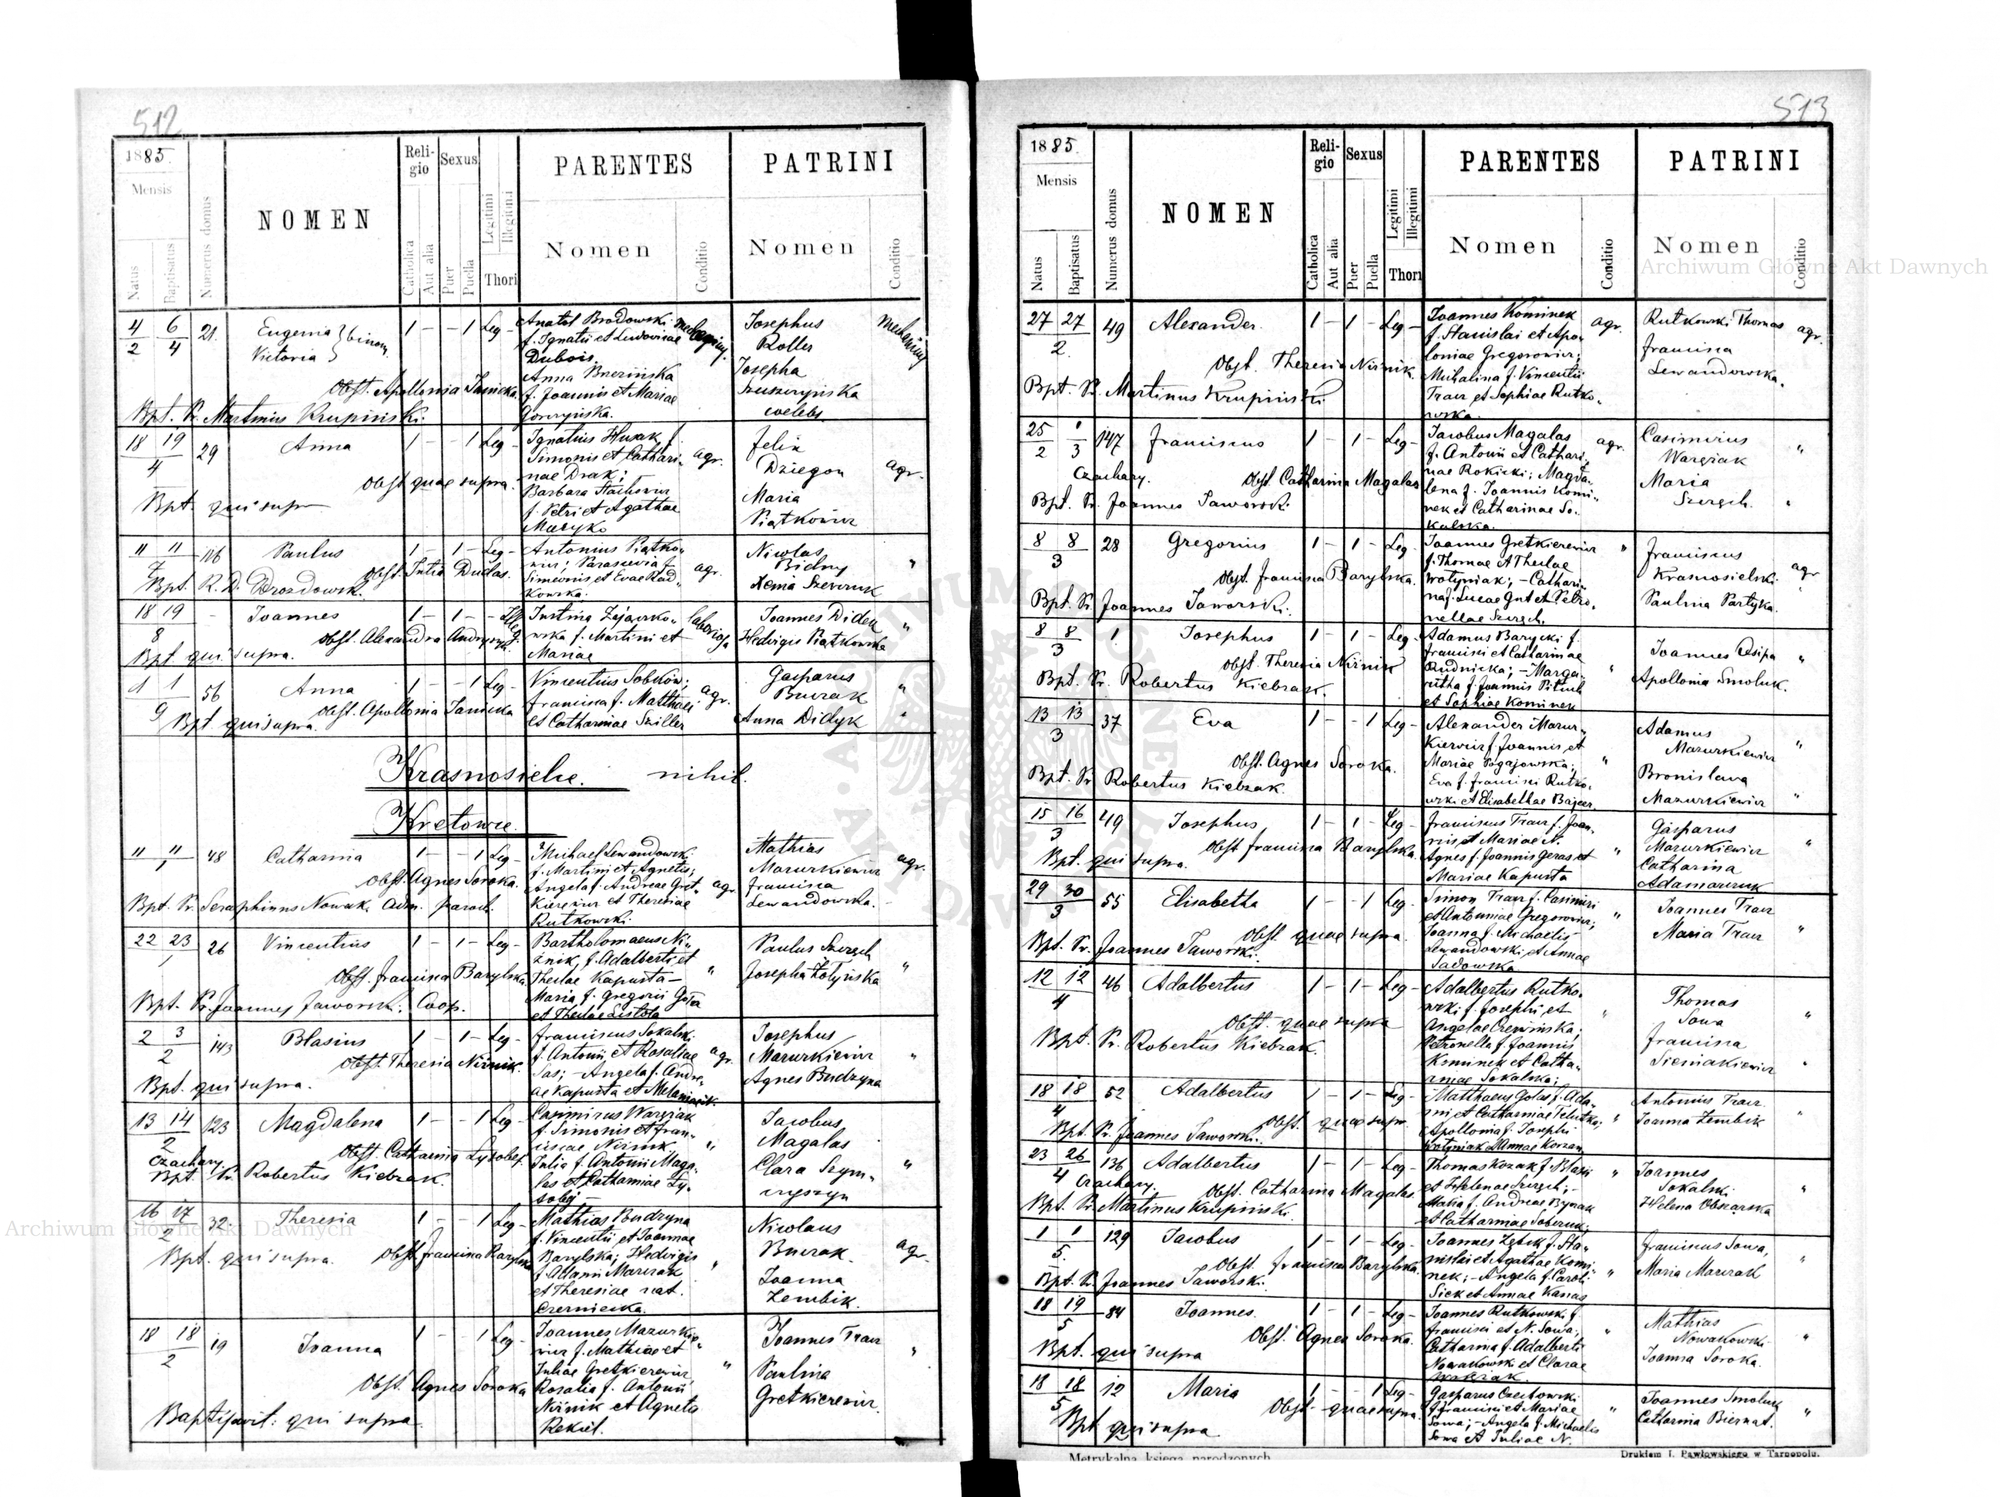 512
1885.
Mensis
Natus
Baptisatus
Numerus domus
NOMEN
Reli-
gio
Catholica
Aut alia
Sexus
Puer
Puella
Legitimi
Illegitimi
Thori
PARENTES
Nomen
Conditio
PATRINI
Nomen
Conditio
4 6 21 Eugenia binom. 1 – – 1 Leg – Anatol Brodowski Josephus
2 4 Victoria f. Ignatii et Ludovicae Roller
Dubois. Josepha
Obst. Apollonia Janicka. Anna
f. Joannis et Mariae
Bpt. Pr. Martinus Krupiński. Gorczyńska. coelebs
18 19 29 Anna 1 – – 1 Leg – Ignatius Husak f. agr. Felix agr.
4 Simonis et Cathari- Dziegon
Obst. quae supra. nae Drak; Maria
Bpt. qui supra Barbara Piątkowicz
f. Petri et Agathae
Mazyk
11 11 116 Paulus 1 – 1 – Leg – Antonius Piątko- agr. Nicolas "
7 wicz; Parascevia f. Bidny
Obst. Julia Duclas. Simeonis et Evae Rad- Xenia Szewczuk
Bpt. R. D. Drozdowski. kowska.
18 19 – Joannes 1 – 1 – Illeg. Justina Zajączko- Joannes Diden "
8 wska f. Martini et Hedvigis Piątkowska
Obst. Alexandra Mariae
Bpt qui supra.
1 1 56 Anna 1 – – 1 Leg – Vincentius Sobków; agr. Gasparus "
9 Francisca f. Matthaei Burak
Obst. Apollonia Janicka et Catharinae Sziller Anna Didyk "
Bpt. qui supra.
Krasnosielce. nihil.
Kretowce.
11 11 48 Catharina 1 – – 1 Leg – Michael Lewandowski agr. Mathias agr.
1 f. Martini et Agnetis; Mazurkiewicz
Obst. Agnes Soroka. Angela f. Andreae Gret- Francisca
Bpt. Pr. Seraphinus Nowak Adm. paroch. kierewicz et Theresiae Lewandowska.
Rutkowski.
22 23 26 Vincentius 1 – 1 – Leg – Bartholomaeus Ni- " Paulus Szczęch "
1 źnik, f. Adalberti et Josepha Hołyńska
Obst. Francisca Barylska. Theclae Kapusta –
Bpt. Pr. Joannes Jaworski. Coop. Maria f. Gregorii Góra
et Theclae Listota
2 3 143 Blasius 1 – 1 – Leg – Franciscus Sokalski agr. Josephus "
2 f. Antonii et Rosaliae Mazurkiewicz
Obst. Theresia Niźnik. Sas; – Angela f. Andre- Agnes Budzyna
Bpt. qui supra. ae Kapusta et
13 14 123 Magdalena 1 – – 1 Leg – Casimirus Waręziak " Jacobus "
2 f. Simonis et Fran- Magalas
Czachary. Obst. Catharina Łysobej ciscae Niźnik. Clara Szym-
Bpt. Pr. Robertus Kiebzak. Julia f. Antonii Maga- czyszyn
las et Catharinae Ły-
sobej –
16 17 32 Theresia 1 – – 1 Leg – Mathias Budzyna " Nicolaus agr.
2 f. Vincentii et Joannae Burak
Bpt. qui supra. Obst. Francisca Barylska Barylska; Hedvigis Joanna
f. Adami Marczak Zembik.
et Theresiae nat.
Czerniecka.
18 18 19 Joanna 1 – – 1 Leg – Joannes Mazurkie- " Joannes Tracz "
2 wicz f. Mathiae et Paulina
Juliae Gretkierewicz, Gretkierewicz.
Obst. Agnes Soroka Rosalia f. Antonii
Baptisavit: qui supra. Niźnik et Agnetis
Rekiel.
513
1885.
Mensis
Natus
Baptisatus
Numerus domus
NOMEN
Reli-
gio
Catholica
Aut alia
Sexus
Puer
Puella
Legitimi
Illegitimi
Thori
PARENTES
Nomen
Conditio
PATRINI
Nomen
Conditio
27 27 49 Alexander. 1 – 1 – Leg – Joannes Kominek agr. Rutkowski Thomas agr.
2. f. Stanislai et Apo- Francisca
Obst. Theresia Niźnik. loniae Gregorowicz; Lewandowska.
Bpt. Pr. Martinus Krupiński. Michalina f. Vincentii
Tracz et Sophiae Rutko-
wska.
25 1 147 Franciscus 1 1 – Leg – Jacobus Magalas agr. Casimirus "
2 3 f. Antonii et Cathari- Waręziak
Czachary. Obst. Catharina Magalas nae Rokicki; Magda- Maria
Bpt. Pr. Joannes Jaworski. lena f. Joannis Komi- Szczęch. "
nek et Catharinae So-
kalska.
8 8 28 Gregorius 1 – 1 – Leg – Joannes Gretkierewicz " Franciscus agr
3 f. Thomae et Theclae Krasnosielski.
Obst. Francisca Barylska. Wołyniak; – Cathari- Paulina Partyka.
Bpt. Pr. Joannes Jaworski. na f. Lucae Gut et Petro-
nellae Szczęch.
8 8 1 Josephus 1 – 1 – Leg – Adamus Barycki f. " Joannes Osipa "
3 Francisci et Catharinae Apollonia Smoluk.
Obst. Theresia Niźnik Rudnicka; – Marga-
Bpt. Pr. Robertus Kiebzak. ritha f. Joannis
et Sophiae Kominek
13 13 37 Eva 1 – – 1 Leg – Alexander Mazur- " Adamus "
3 kiewicz f. Joannis et Mazurkiewicz
Obst. Agnes Soroka. Mariae Pogajowska; Bronislava
Bpt. Pr. Robertus Kiebzak. Eva f. Francisci Rutko- Mazurkiewicz "
wski et Elisabethae
15 16 49 Josephus 1 – 1 – Leg – Franciscus Tracz f. Joan- " Gasparus "
3 nis et Mariae N. Mazurkiewicz
Obst. Francisca Barylska. Agnes f. Joannis Geras et Catharina
Bpt. qui supra. Mariae Kapusta Adamarczuk
29 30 55 Elisabetha 1 – – 1 Leg – Simon Tracz f. Casimiri " Joannes Tracz "
3 et Antoniae Gregorowicz; Maria Tracz "
Obst. quae supra. Joanna f. Michaelis
Bpt. Pr. Joannes Jaworski. Lewandowski et Annae
Sadowska
12 12 46 Adalbertus 1 – 1 – Leg – Adalbertus Rutko- " Thomas "
4 wski f. Josephi et Sowa
Obst. quae supra Angelae Czewińska; Francisca
Bpt. Pr. Robertus Kiebzak. Petronella f. Joannis Sieniakiewicz "
Kominek et Catha-
rinae Sokalska;
18 18 52 Adalbertus 1 – 1 – Leg – Matthaeus Golas f. Ada- " Antonius Tracz "
4 mi et Catharinae Joanna Zembik
Bpt. Pr. Joannes Jaworski. Obst. quae supra. Apollonia f. Josephi
Wołyniak et Annae
23 26 136 Adalbertus 1 – 1 – Leg – Thomas Kozak f. Blasii " Joannes "
4 Czachary. et Helenae Szczęch; – Sokalski
Obst. Catharina Magalas Maria f. Andreae Helena Obnarska
Bpt. Pr. Martinus Krupiński. et Catharinae
1 1 129 Jacobus 1 – 1 – Leg – Joannes f. Sta- " Franciscus Sowa, "
5 nislai et Agathae Komi- Maria Marczak
Obst. Francisca Barylska. nek; – Angela f. Caroli
Bpt. Pr. Joannes Jaworski. Siek et Annae Kanas
18 19 84 Joannes. 1 – 1 – Leg – Joannes Rutkowski f. " Mathias "
5 Francisci et N. Sowa; Nowakowski
Obst. Agnes Soroka. Catharina f. Adalberti Joanna Soroka.
Bpt. qui supra Nowakowski et Clarae
18 18 12 Maria 1 – – 1 Leg – Gasparus Czechowski " Joannes Smoluk "
5 f. Francisci et Mariae Catharina Biernat.
Obst. – quae supra. Sowa; – Angela f. Michaelis
Bpt qui supra Sowa et Juliae N.
Metrykalna księga narodzonych
Drukiem I. Pawłowskiego w Tarnopolu.
Archiwum Główne Akt Dawnych
Archiwum Główne Akt Dawnych